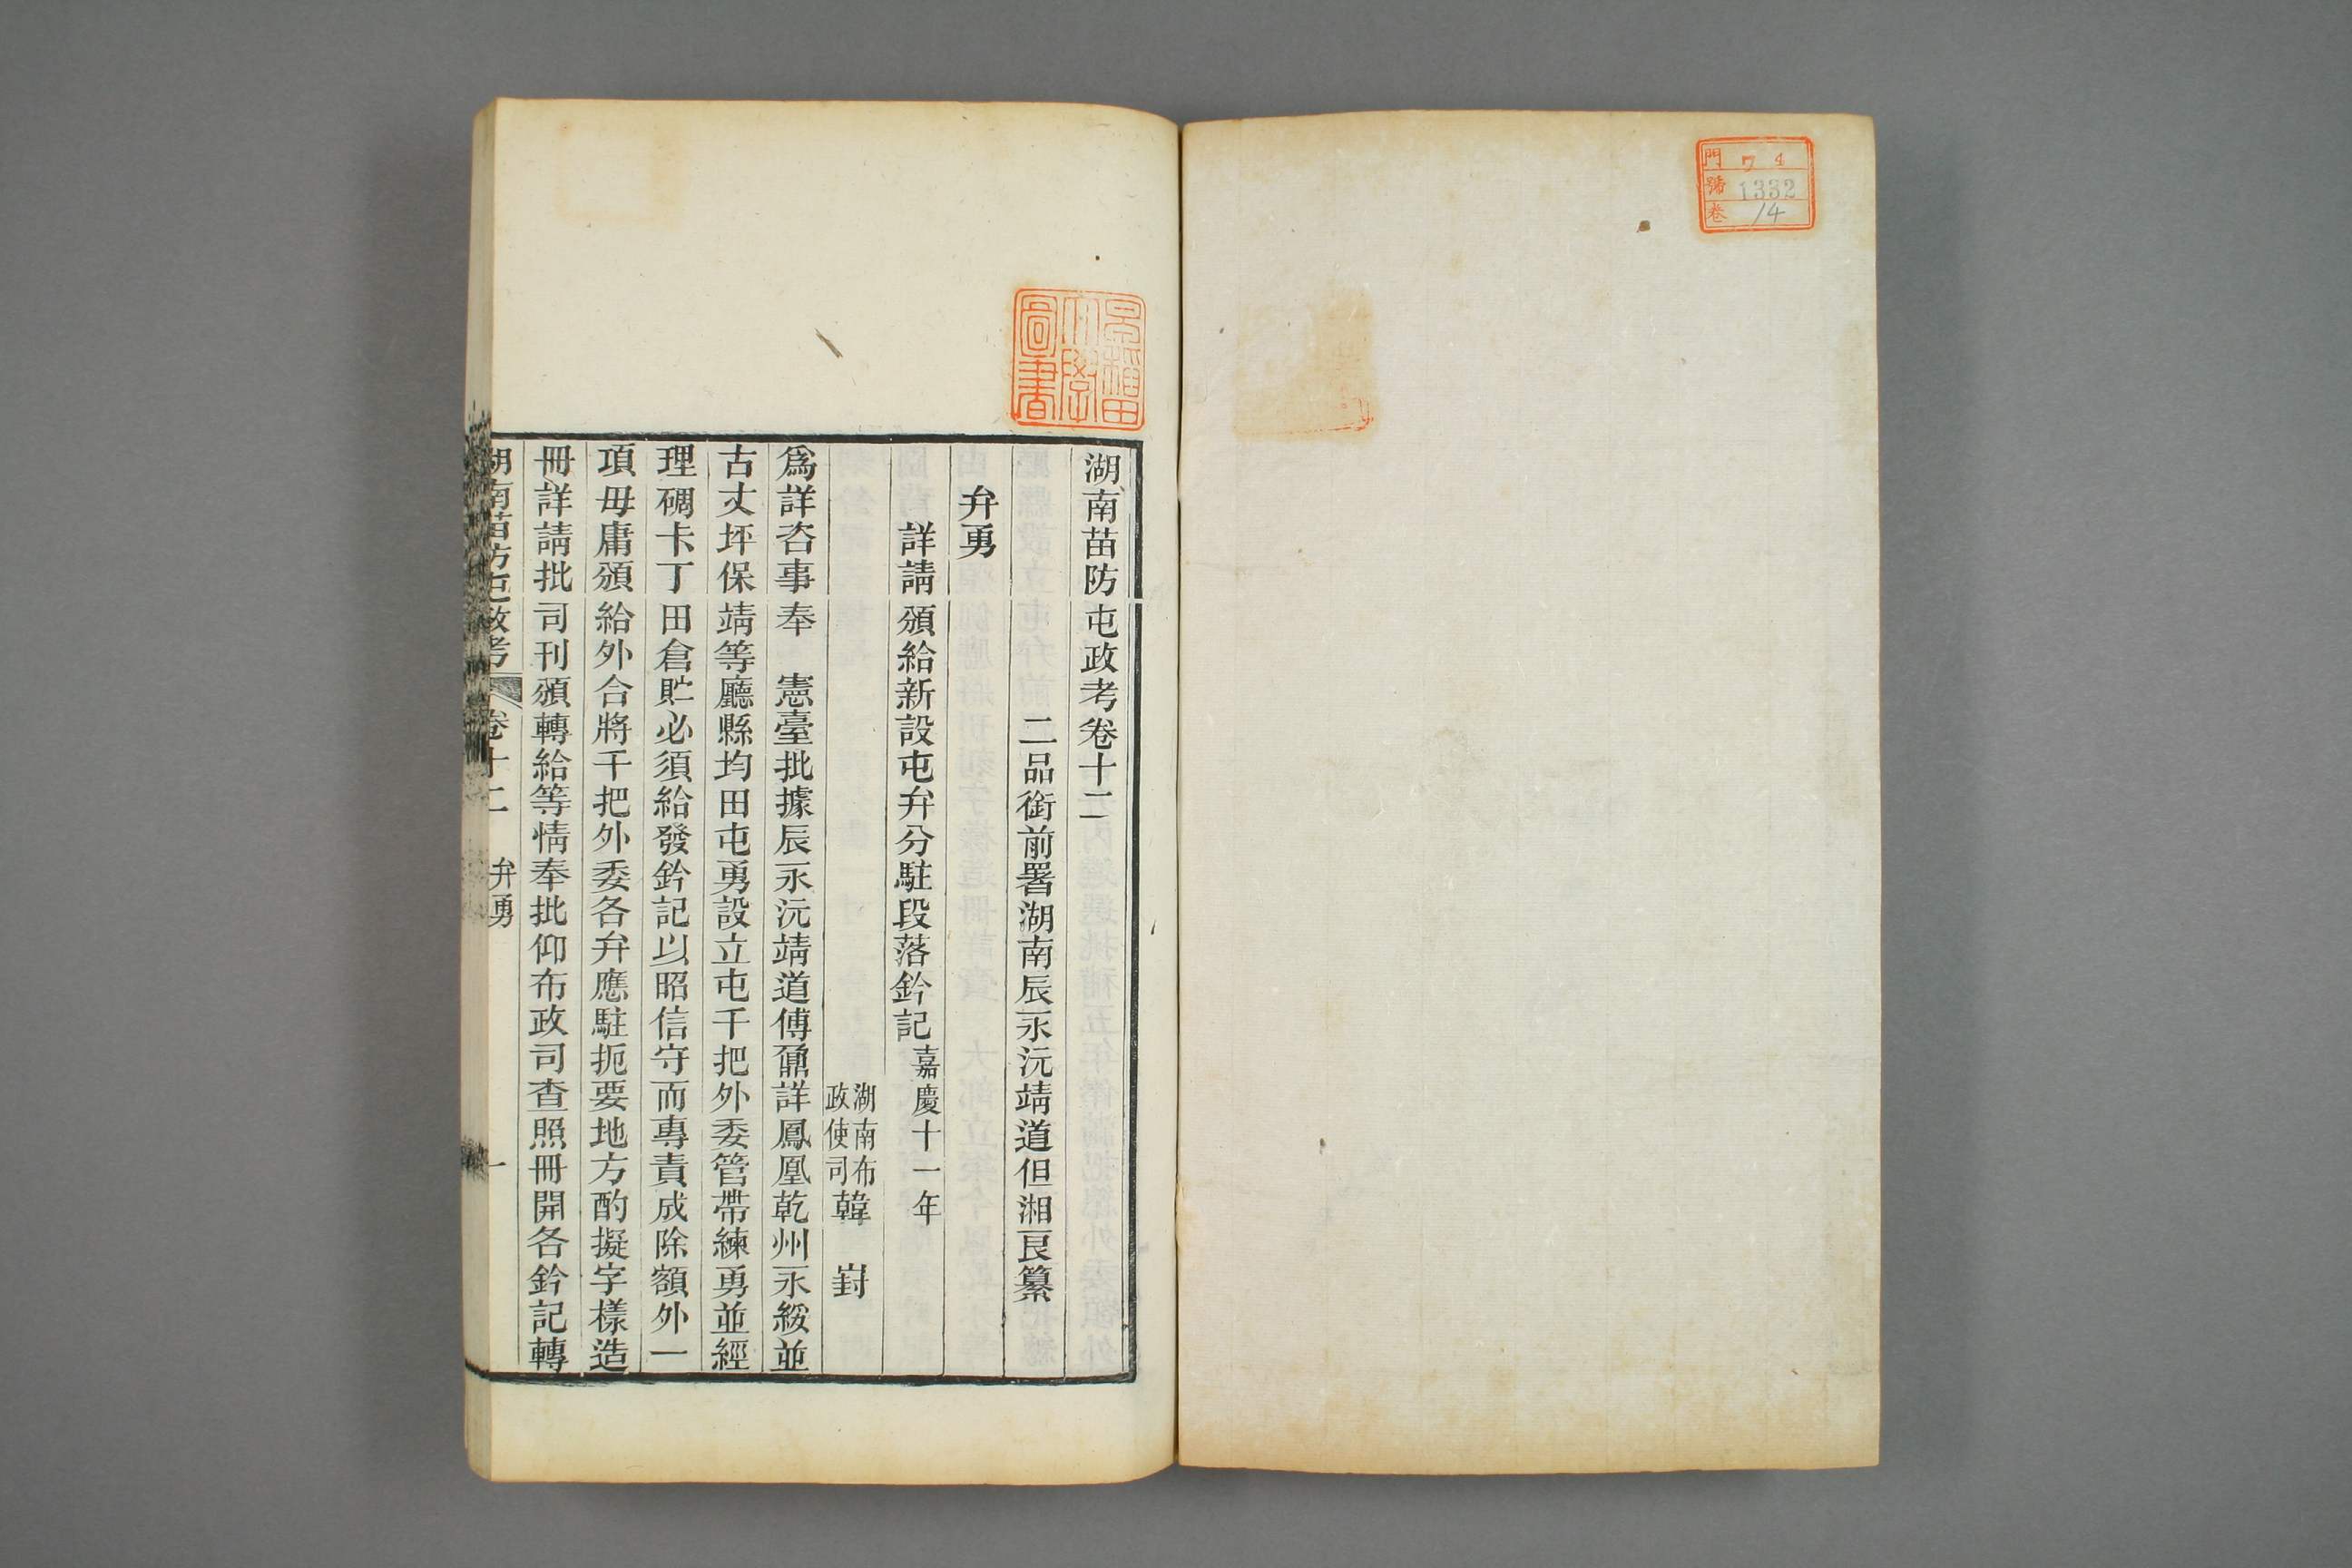 門 ワ 4
號 1332
卷 14
早稲田大學圖書
湖南苗防屯政考卷十二
二品銜前署湖南辰永沅靖道但湘良纂
弁勇
詳請頒給新設屯弁分駐段落鈐記嘉慶十一年
湖南布政使司韓 崶
爲詳咨事奉 憲臺批據辰永沅靖道傅鼐詳鳳凰乾州永綏並
古丈坪保靖等廳縣均田屯勇設立屯千把外委管帶練勇並經
理碉卡丁田倉貯必須給發鈐記以昭信守而專責成除額外一
項毋庸頒給外合將千把外委各弁應駐扼要地方酌擬字樣造
冊詳請批司刊頒轉給等情奉批仰布政司查照冊開各鈐記轉
湖南苗防屯政考 卷十二 弁勇 一